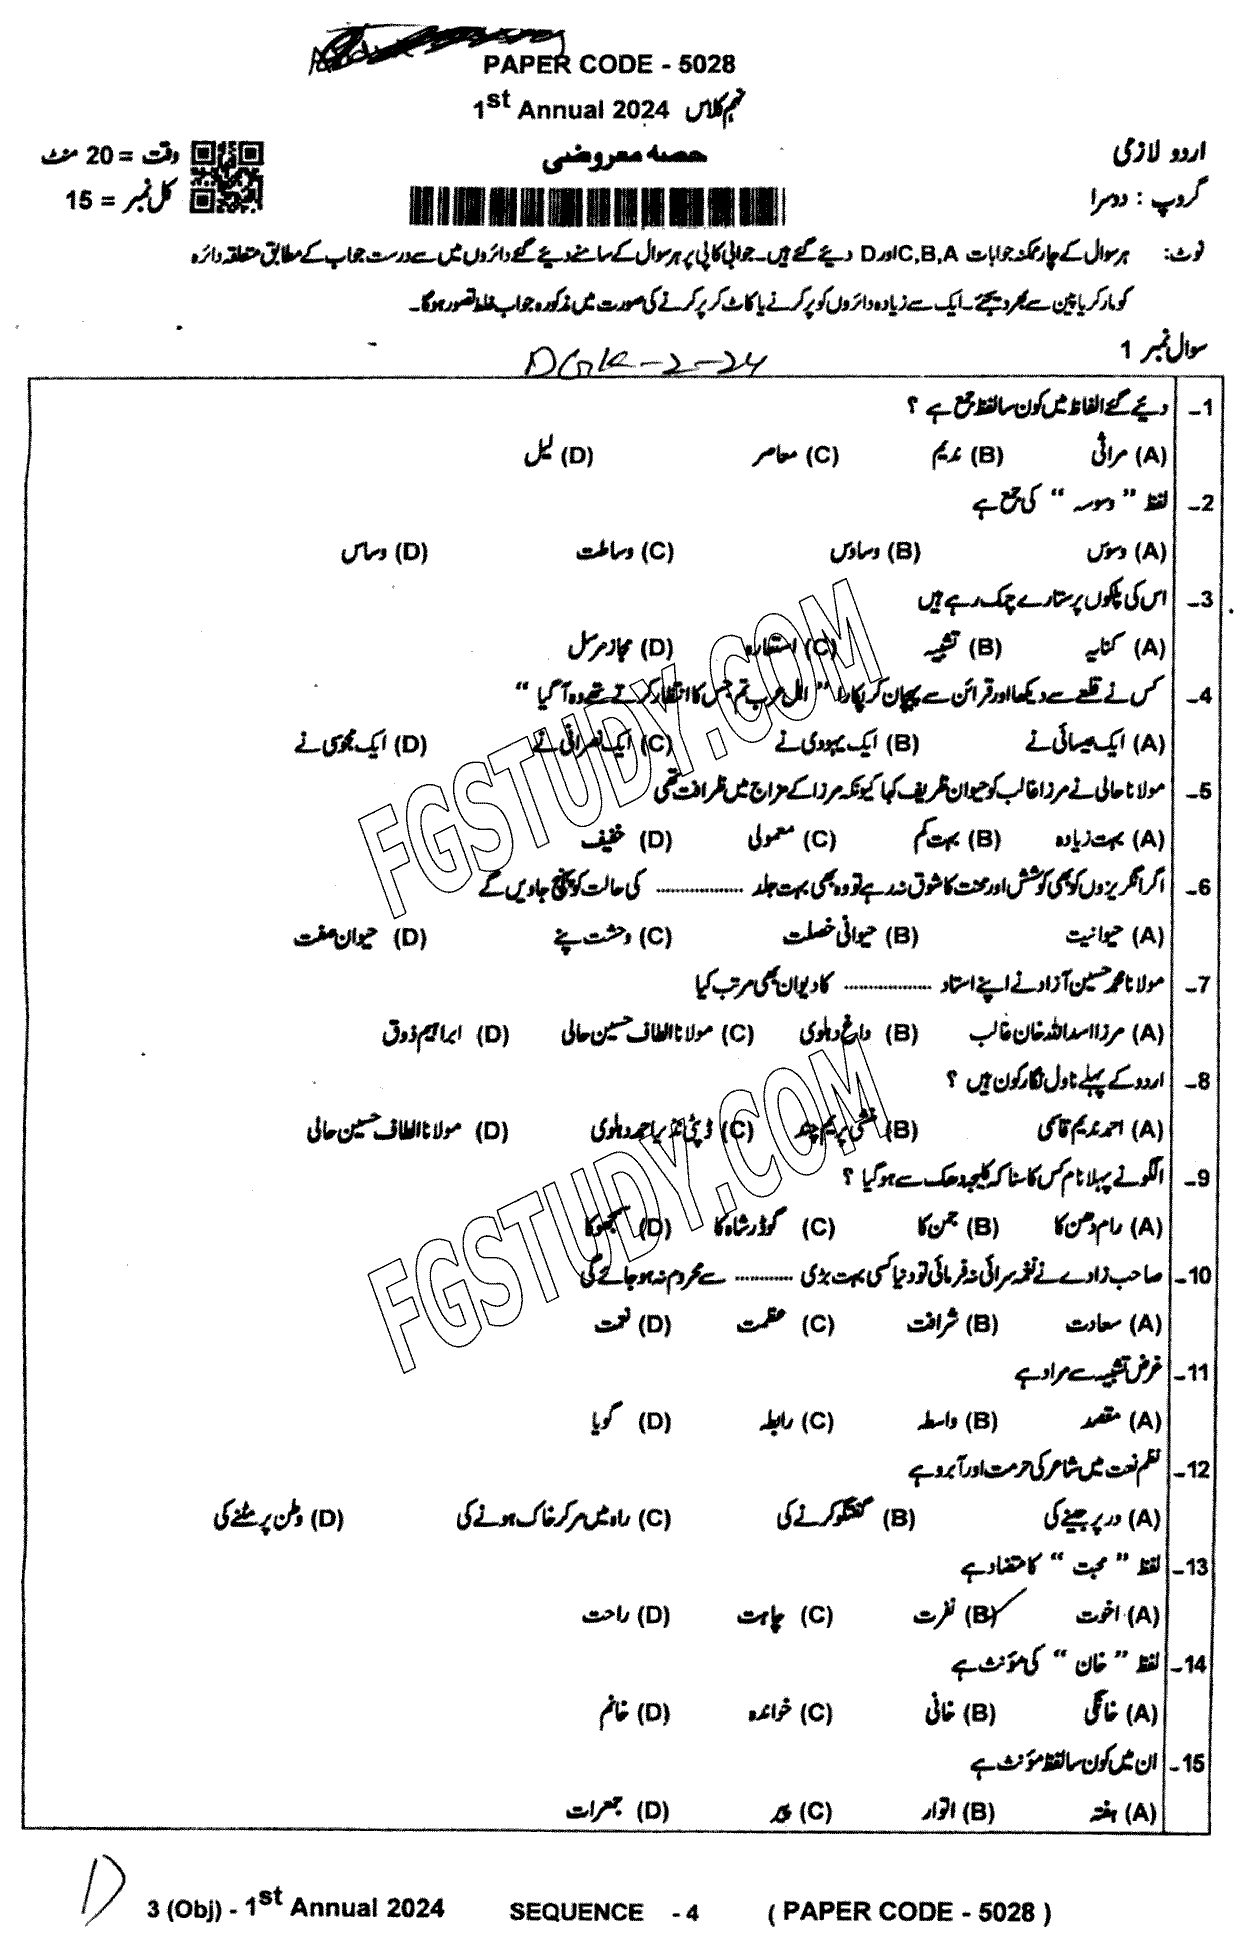 PAPER CODE - 5028
1st Annual 2024 نہم کلاس
اردو لازمی حصہ معروضی وقت = 20 منٹ
گروپ : دوسرا کل نمبر = 15
نوٹ: ہر سوال کے چار ممکنہ جوابات C,B,A اور D دیئے گئے ہیں۔ جوابی کاپی پر ہر سوال کے سامنے دیئے گئے دائروں میں سے درست جواب کے مطابق متعلقہ دائرہ
کو مارکر یا پین سے بھر دیجئے۔ ایک سے زیادہ دائروں کو پُر کرنے یا کاٹ کر پُر کرنے کی صورت میں مذکورہ جواب غلط تصور ہوگا۔
سوال نمبر 1
DGK-2-24
1۔ دیئے گئے الفاظ میں کون سا لفظ جمع ہے ؟
(A) مراثی (B) ندیم (C) معاصر (D) لیل
2۔ لفظ " وسوسہ " کی جمع ہے
(A) وسوس (B) وساوس (C) وساطت (D) وساس
3۔ اس کی پلکوں پر ستارے چمک رہے ہیں
(A) کنایہ (B) تشبیہ (C) استعارہ (D) مجاز مرسل
4۔ کس نے قلعے سے دیکھا اور قرائن سے پہچان کر پکارا " اہل عرب تم جس کا انتظار کرتے تھے وہ آگیا "
(A) ایک عیسائی نے (B) ایک یہودی نے (C) ایک نصرانی نے (D) ایک مجوسی نے
5۔ مولانا حالی نے مرزا غالب کو حیوان ظریف کہا کیونکہ مرزا کے مزاج میں ظرافت تھی
(A) بہت زیادہ (B) بہت کم (C) معمولی (D) خفیف
6۔ اگر انگریزوں کو بھی کوشش اور محنت کا شوق نہ رہے تو وہ بھی بہت جلد ................ کی حالت کو پہنچ جاویں گے
(A) حیوانیت (B) حیوانی خصلت (C) وحشت پنے (D) حیوان صفت
7۔ مولانا محمد حسین آزاد نے اپنے استاد ................ کا دیوان بھی مرتب کیا
(A) مرزا اسد اللہ خان غالب (B) داغ دہلوی (C) مولانا الطاف حسین حالی (D) ابراہیم ذوق
8۔ اردو کے پہلے ناول نگار کون ہیں ؟
(A) احمد ندیم قاسمی (B) منشی پریم چند (C) ڈپٹی نذیر احمد دہلوی (D) مولانا الطاف حسین حالی
9۔ الگو نے پہلا نام کس کا سنا کہ کلیجہ دھک سے ہو گیا ؟
(A) رام دھن کا (B) جمن کا (C) گوڈر شاہ کا (D) سمجھو کا
10۔ صاحب زادے نے نغمہ سرائی نہ فرمائی تو دنیا کسی بہت بڑی ........... سے محروم نہ ہو جائے گی
(A) سعادت (B) شرافت (C) عظمت (D) نعمت
11۔ غرض تشبیہ سے مراد ہے
(A) مقصد (B) واسطہ (C) رابطہ (D) گویا
12۔ نظم نعت میں شاعر کی حرمت اور آبرو ہے
(A) در پر جینے کی (B) گفتگو کرنے کی (C) راہ میں مر کر خاک ہونے کی (D) وطن پر مٹنے کی
13۔ لفظ " محبت " کا متضاد ہے
(A) اخوت (B) نفرت (C) چاہت (D) راحت
14۔ لفظ " خان " کی مؤنث ہے
(A) خانگی (B) خانی (C) خواندہ (D) خانم
15۔ ان میں کون سا لفظ مؤنث ہے
(A) ہفتہ (B) اتوار (C) پیر (D) جمعرات
FGSTUDY.COM
FGSTUDY.COM
D
3 (Obj) - 1st Annual 2024 SEQUENCE - 4 ( PAPER CODE - 5028 )